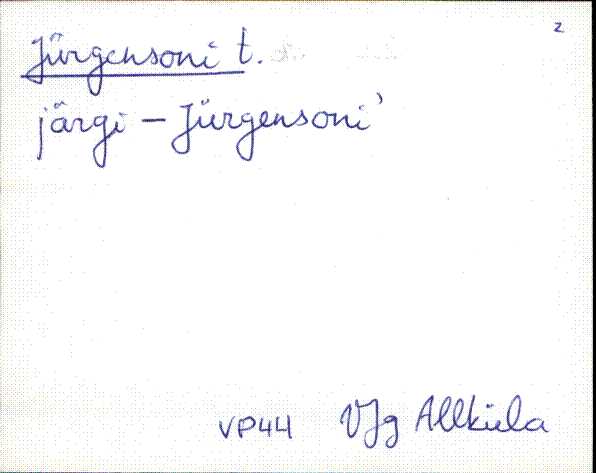 z
Jürgensoni t.
järgi – Jürgensoni'
VP44 VJg Allküla